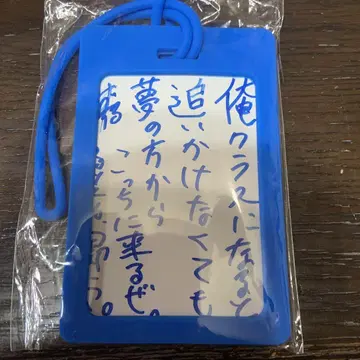 俺クラスになると
追いかけなくても
夢の方から
こっちに来るぜ。